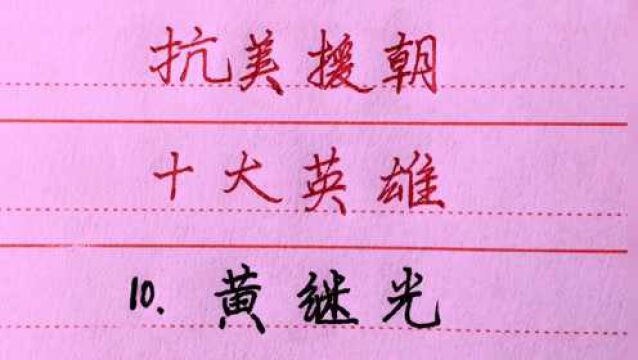 抗美援朝
十大英雄
10. 黄继光